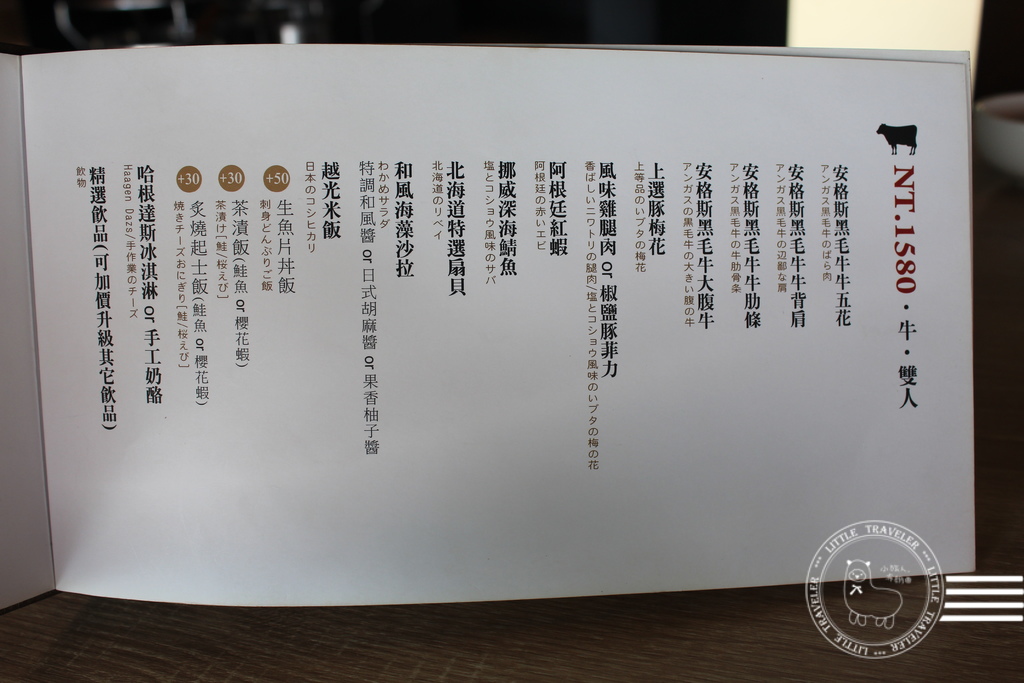 NT.1580・牛・雙人
安格斯黑毛牛牛五花
アンガス黒毛牛のばら肉
安格斯黑毛牛牛背肩
アンガス黒毛牛の辺鄙な肩
安格斯黑毛牛牛肋條
アンガス黒毛牛の牛肋骨条
安格斯黑毛牛大腹牛
アンガスの黒毛牛の大きい腹の牛
上選豚梅花
上等品のいブタの梅花
風味雞腿肉 or 椒鹽豚菲力
香ばしいニワトリの腿肉/塩とコショウ風味のいブタの梅の花
阿根廷紅蝦
阿根廷の赤いエビ
挪威深海鯖魚
塩とコショウ風味のサバ
北海道特選扇貝
北海道のリベイ
和風海藻沙拉
わかめサラダ
特調和風醬 or 日式胡麻醬 or 果香柚子醬
越光米飯
日本のコシヒカリ
+50 生魚片丼飯
刺身どんぶりご飯
+30 茶漬飯(鮭魚 or 櫻花蝦)
茶漬け[鮭/桜えび]
+30 炙燒起士飯(鮭魚 or 櫻花蝦)
焼きチーズおにぎり[鮭/桜えび]
哈根達斯冰淇淋 or 手工奶酪
Haagen Dazs/手作業のチーズ
精選飲品(可加價升級其它飲品)
飲物
LITTLE TRAVELER
LITTLE TRAVELER
LITTLE TRAVELER
小旅人